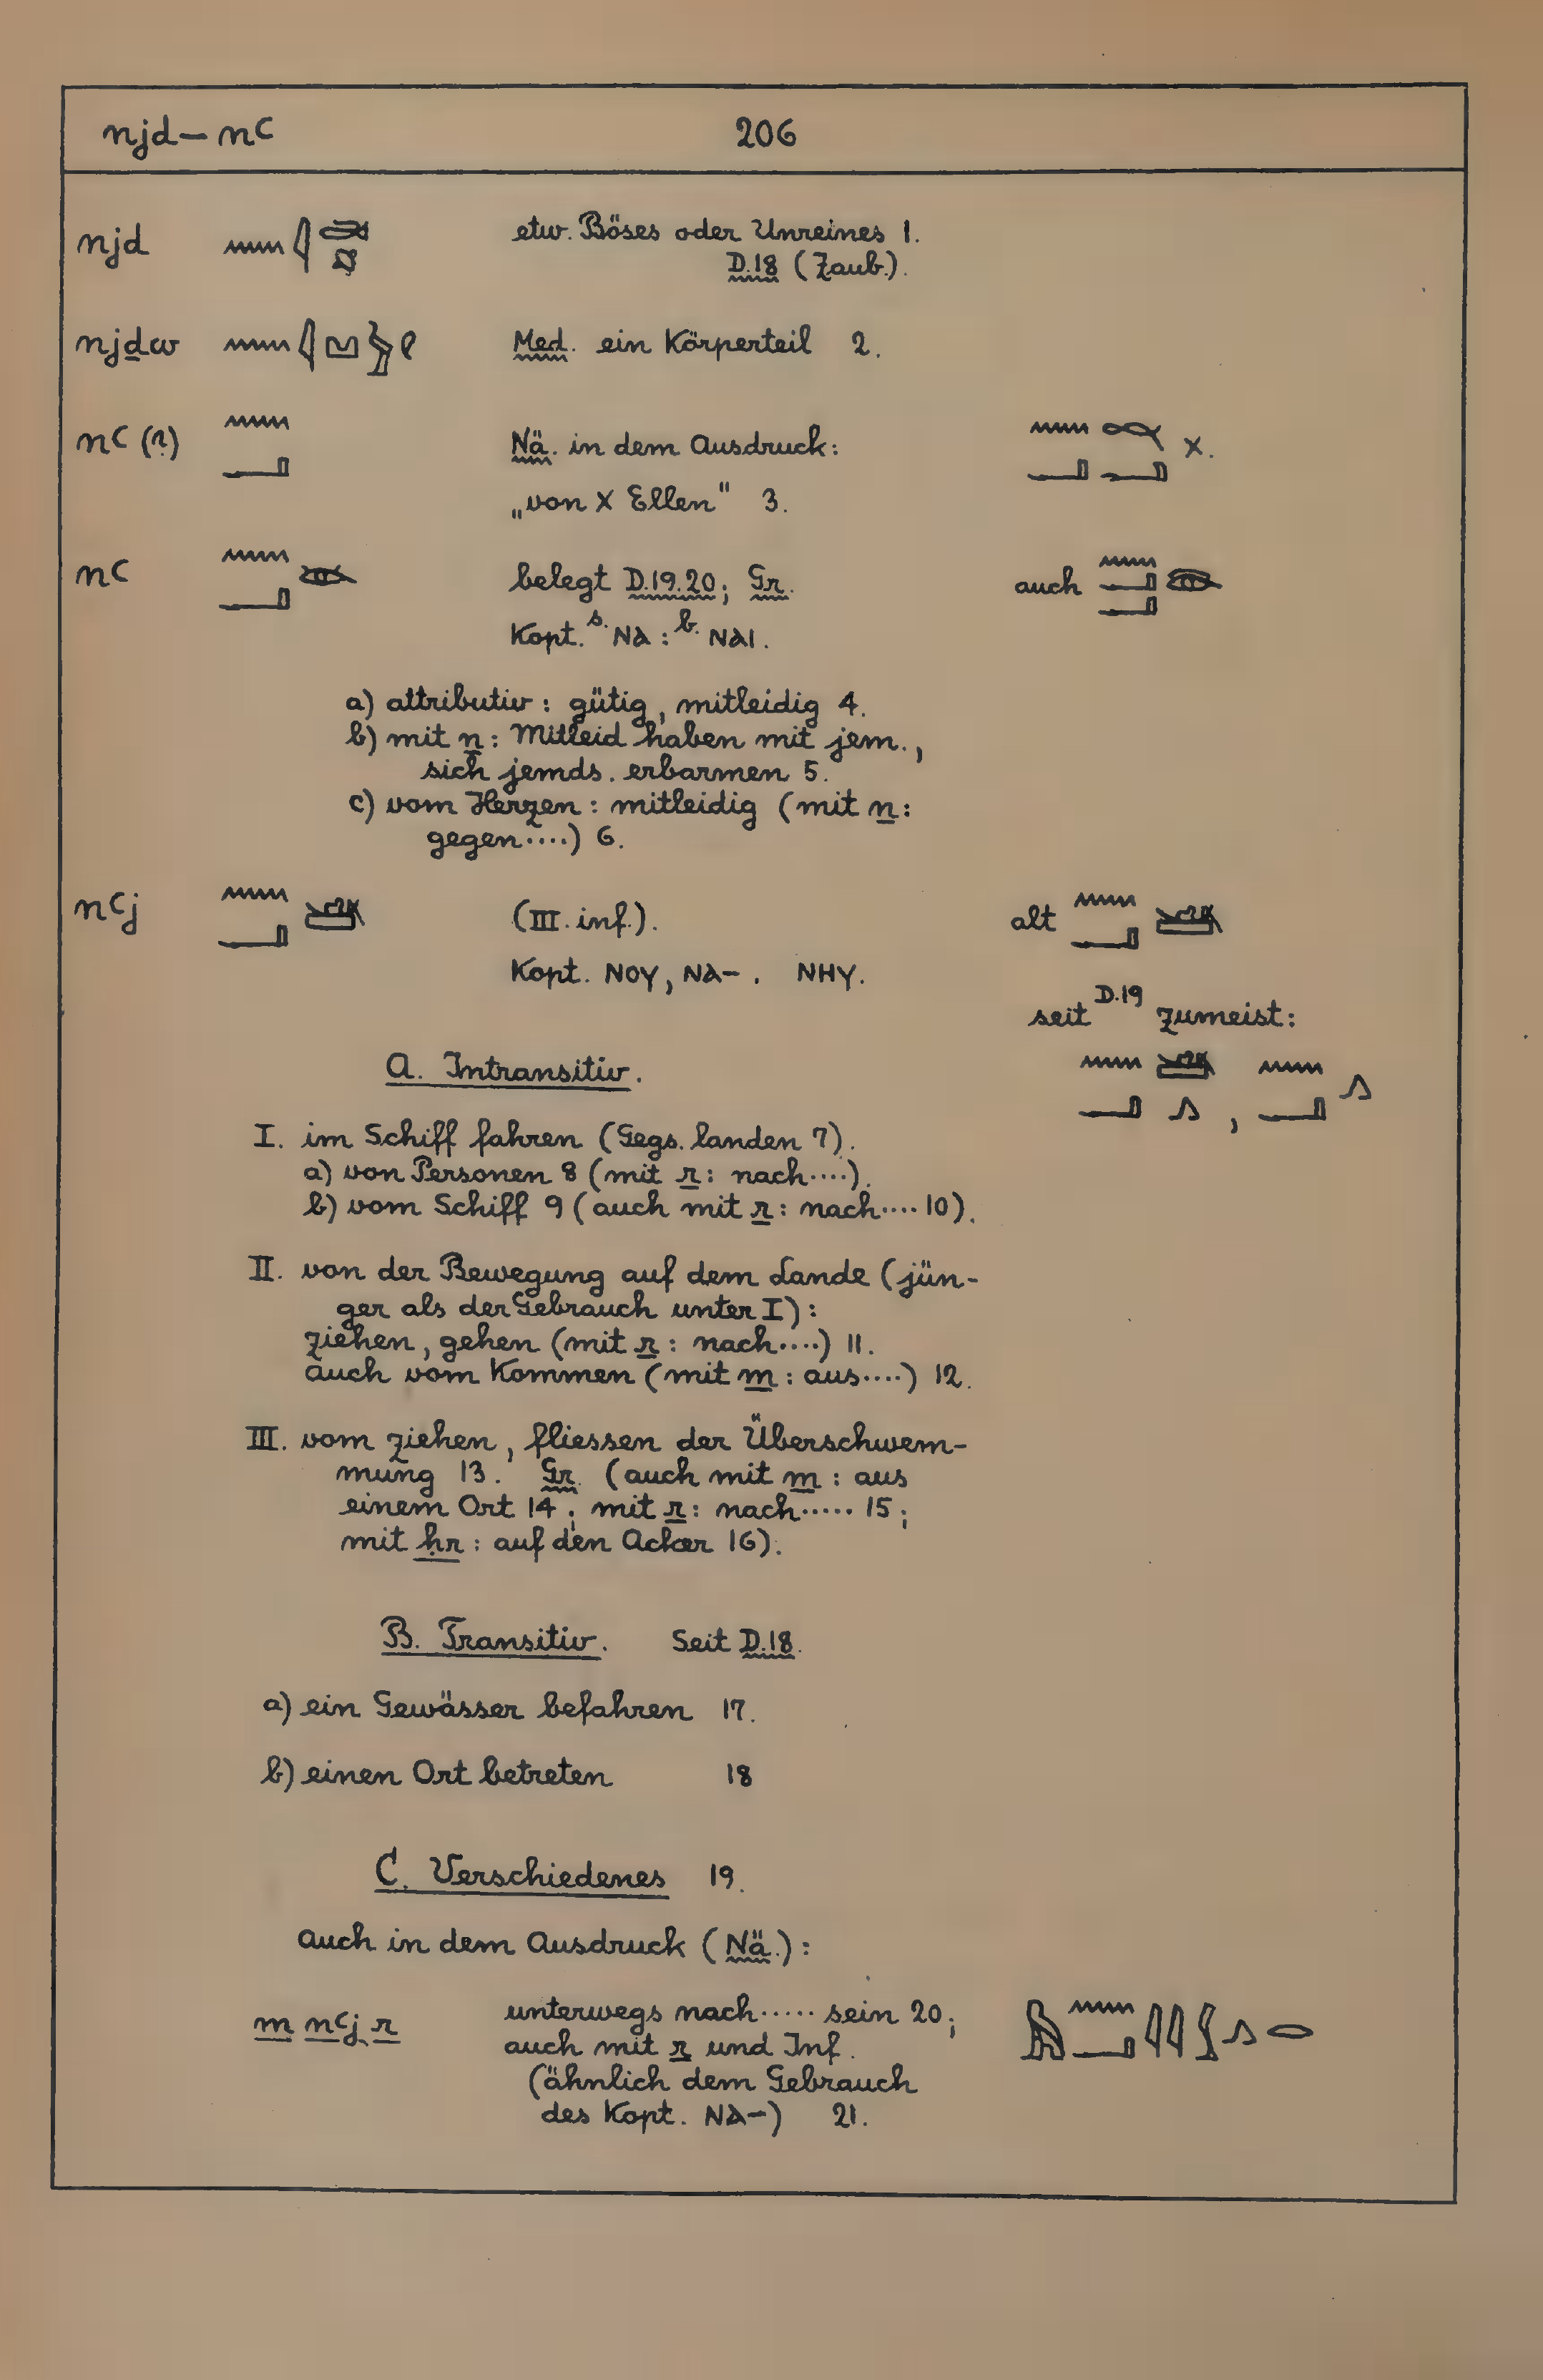 njd – nꜥ 206
njd etw. Böses oder Unreines 1.
D.18 (Zaub.).
njḏw Med. ein Körperteil 2.
nꜥ (?) Nä. in dem Ausdruck: x.
„von X Ellen" 3.
nꜥ belegt D.19.20; Gr. auch
Kopt. s. ⲚⲀ : b. ⲚⲀⲒ.
a) attributiv: gütig, mitleidig 4.
b) mit n: Mitleid haben mit jem.,
sich jemds. erbarmen 5.
c) vom Herzen: mitleidig (mit n:
gegen····) 6.
nꜥj (III. inf.). alt
Kopt. ⲚⲞⲨ, ⲚⲀ–. ⲚⲎⲨ.
seit D.19 zumeist:
A. Intransitiv.
,
I. im Schiff fahren (Gegs. landen 7).
a) von Personen 8 (mit r: nach····).
b) vom Schiff 9 (auch mit r: nach···· 10).
II. von der Bewegung auf dem Lande (jün-
ger als der Gebrauch unter I):
ziehen, gehen (mit r: nach····) 11.
auch vom Kommen (mit m: aus····) 12.
III. vom ziehen, fliessen der Überschwem-
mung 13. Gr. (auch mit m: aus
einem Ort 14; mit r: nach····· 15;
mit ḥr: auf den Acker 16).
B. Transitiv. Seit D.18.
a) ein Gewässer befahren 17.
b) einen Ort betreten 18
C. Verschiedenes 19.
auch in dem Ausdruck (Nä.):
m nꜥj r unterwegs nach····· sein 20;
auch mit r und Inf.
(ähnlich dem Gebrauch
des Kopt. ⲚⲀ–) 21.